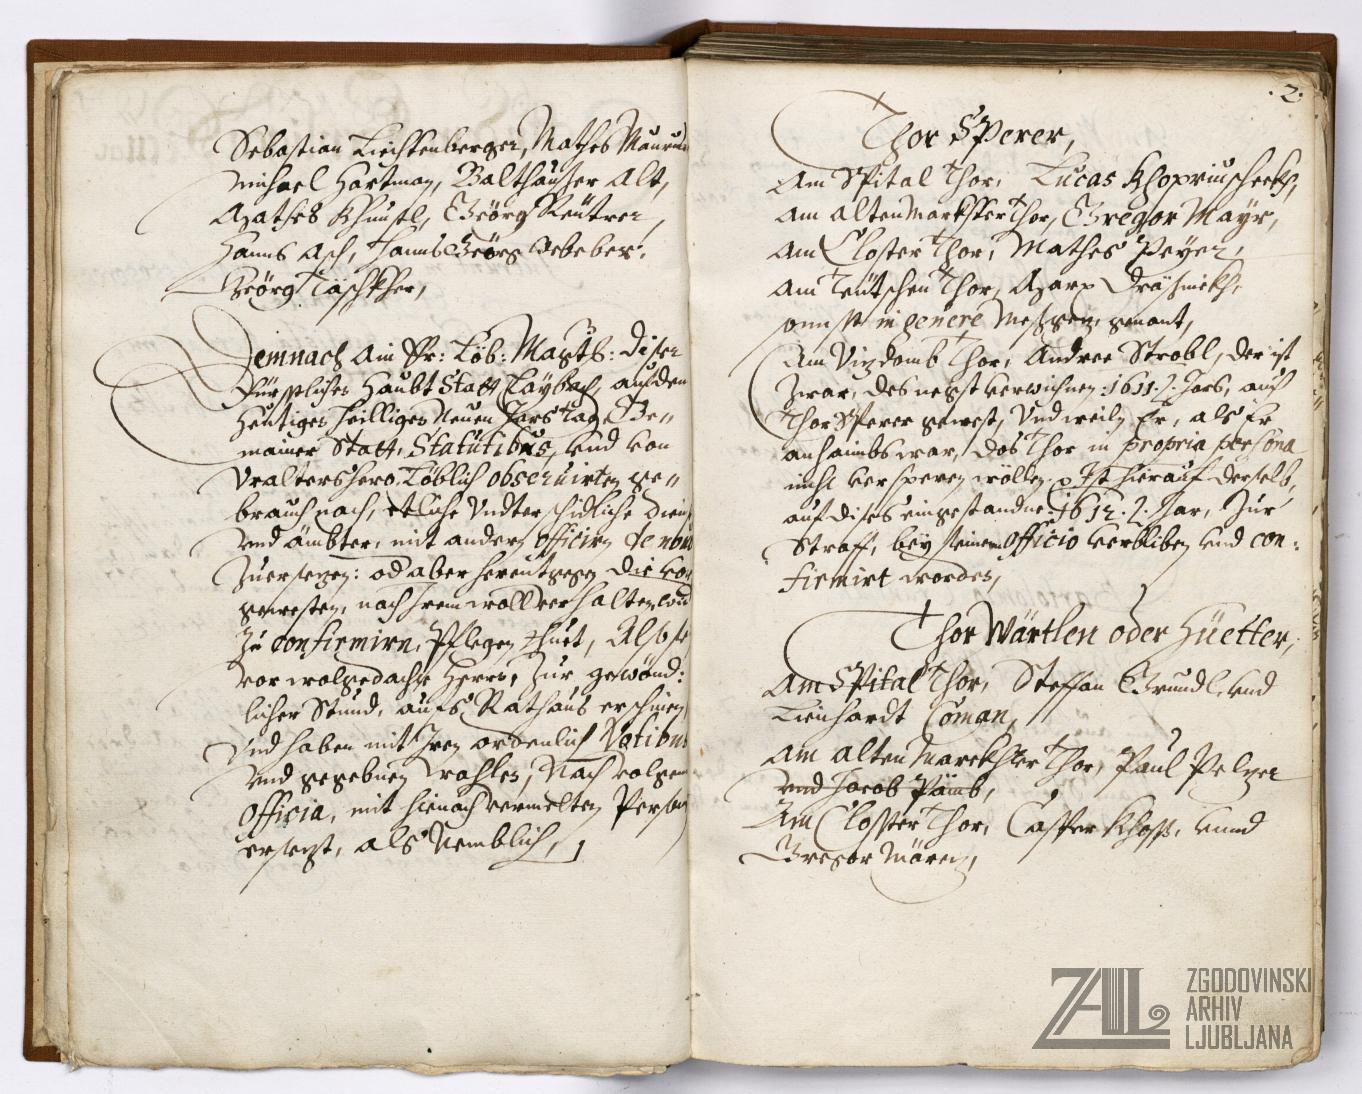 Sebastian Liechtenberger, Mathes Maurer
Michael Hartman, Balthauser Alt,
Agathes Khunstl, Geörg Reütrer,
Hanns Asch, Hanns Geörg
Geörg Täschkher,
Demnach Ain Er: Löb: Magts: diser
Fürstlichen Haubt Statt Laybach, auf den
Heutigen Heilligen Neuen Jars Tag, Ge-
mainer Statt, Statutibus, und von
Uralters hero, Löblich observirten ge-
brauch nach, etliche Undterschidliche Dienst
und ämbter, mit andern officirn
Zuersezen: od aber herentgegen die vor
gewesten, nach Irem wollverhalten,
Zu confirmirn, Pflegen thuet, Also
vor wolgedachte Herrn, Zur gewönd:
licher Stund, aufs Rathaus erschinen
Und haben mit Iren ordenlich Votibus
und gegebnen wahlen, Nach volgende
Officia, mit hienach vermelten Persone
ersezt, als Nemblich,
.2.
Thor Sperer,
Am Spital Thor, Lucas
Am alten Markhter Thor, Gregor Mayr,
Am Closter Thor, Mathes Peyer,
Am Teütschen Thor,
sonst in genere genant,
Am Vizdomb Thor, Andree Strobl, der ist
Zwar, des negst verwichnen 1611. Jars, auch
Thor Sperer gewest, Und weiln Er, als Er
anhaimbs war, das Thor in propria persona
nicht versperen wöllen, Ist hierauf derselb,
auf dises eingestandne 1612. Jar, Zur
Straff, bey seinem officio verbliben und con-
firmirt worden,
Thor Wärtlen oder Hüetter,
Am Spital Thor, Steffan Gründl, und
Lienhardt Coman,
Am alten Marckhter Thor, Paul Pelzer
und Jacob Pämb,
Am Closter Thor, Casper Khoss, unnd
Gregor
ZAL ZGODOVINSKI
ARHIV
LJUBLJANA